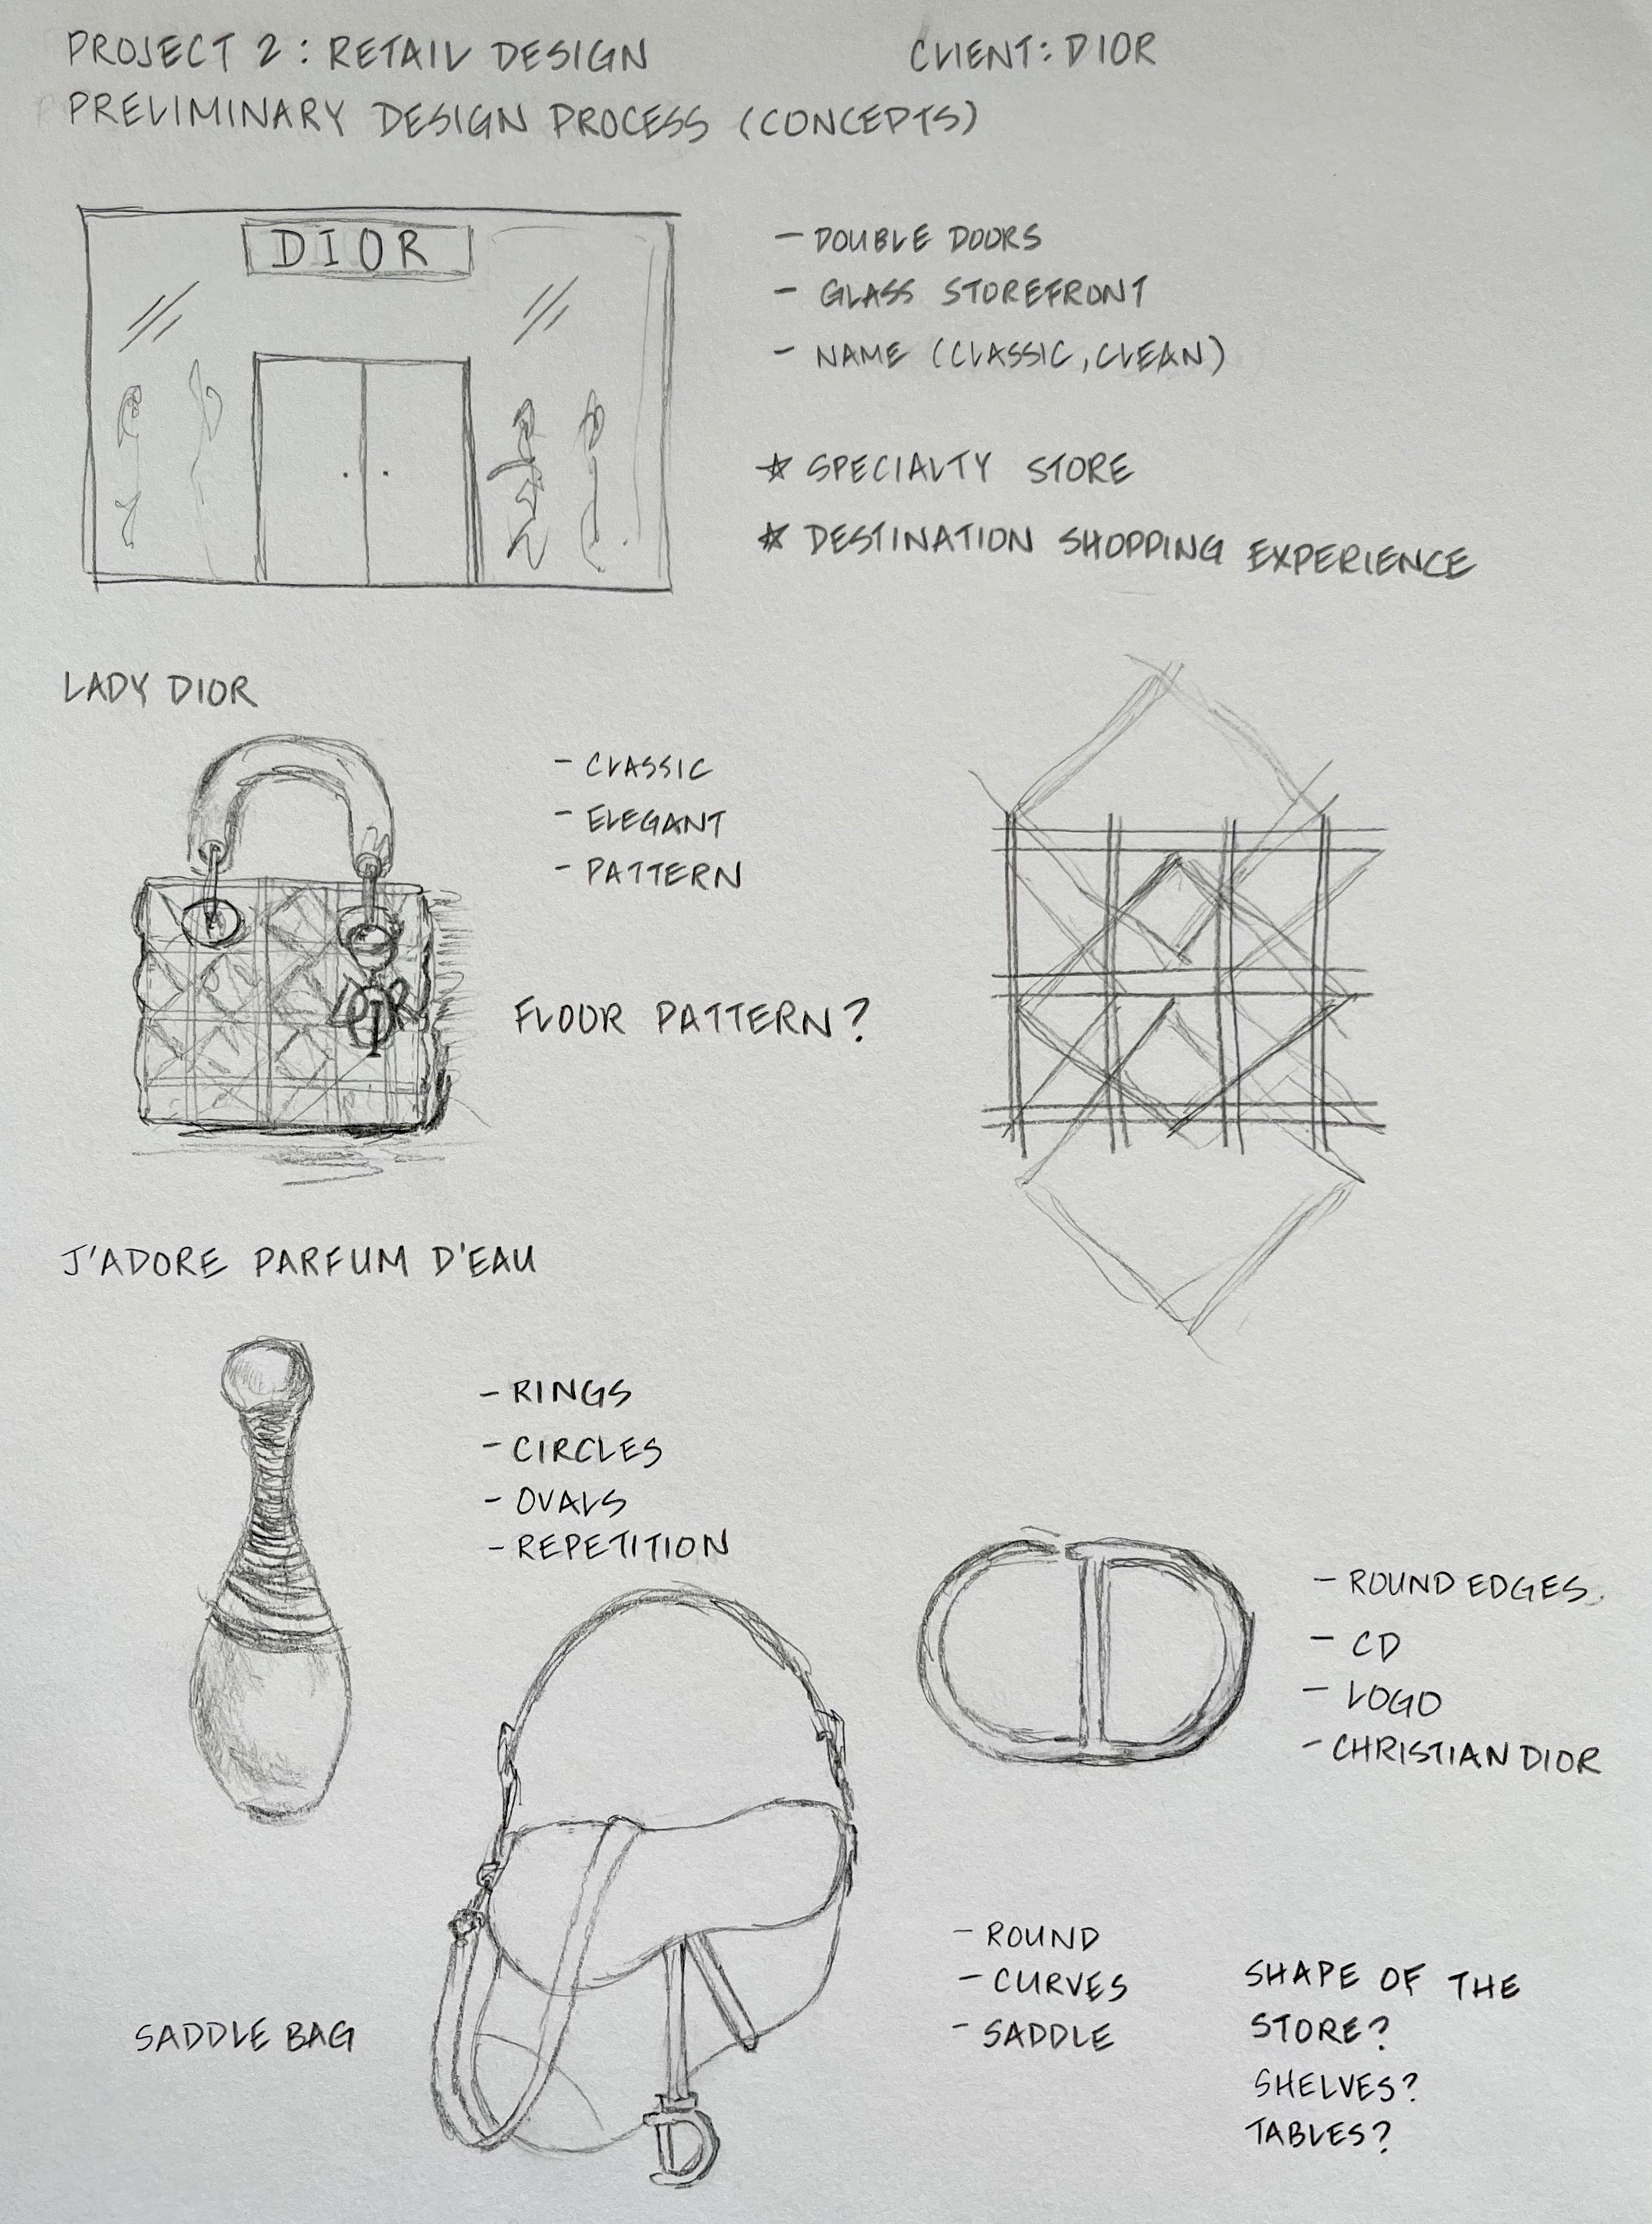 PROJECT 2: RETAIL DESIGN
CLIENT: DIOR
PRELIMINARY DESIGN PROCESS (CONCEPTS)
DIOR
- DOUBLE DOORS
- GLASS STOREFRONT
- NAME (CLASSIC, CLEAN)
☆ SPECIALTY STORE
☆ DESTINATION SHOPPING EXPERIENCE
LADY DIOR
- CLASSIC
- ELEGANT
- PATTERN
DIOR
FLOOR PATTERN?
J'ADORE PARFUM D'EAU
- RINGS
- CIRCLES
- OVALS
- REPETITION
- ROUND EDGES
- CD
- LOGO
- CHRISTIAN DIOR
SADDLE BAG
D
- ROUND
- CURVES
- SADDLE
SHAPE OF THE
STORE?
SHELVES?
TABLES?